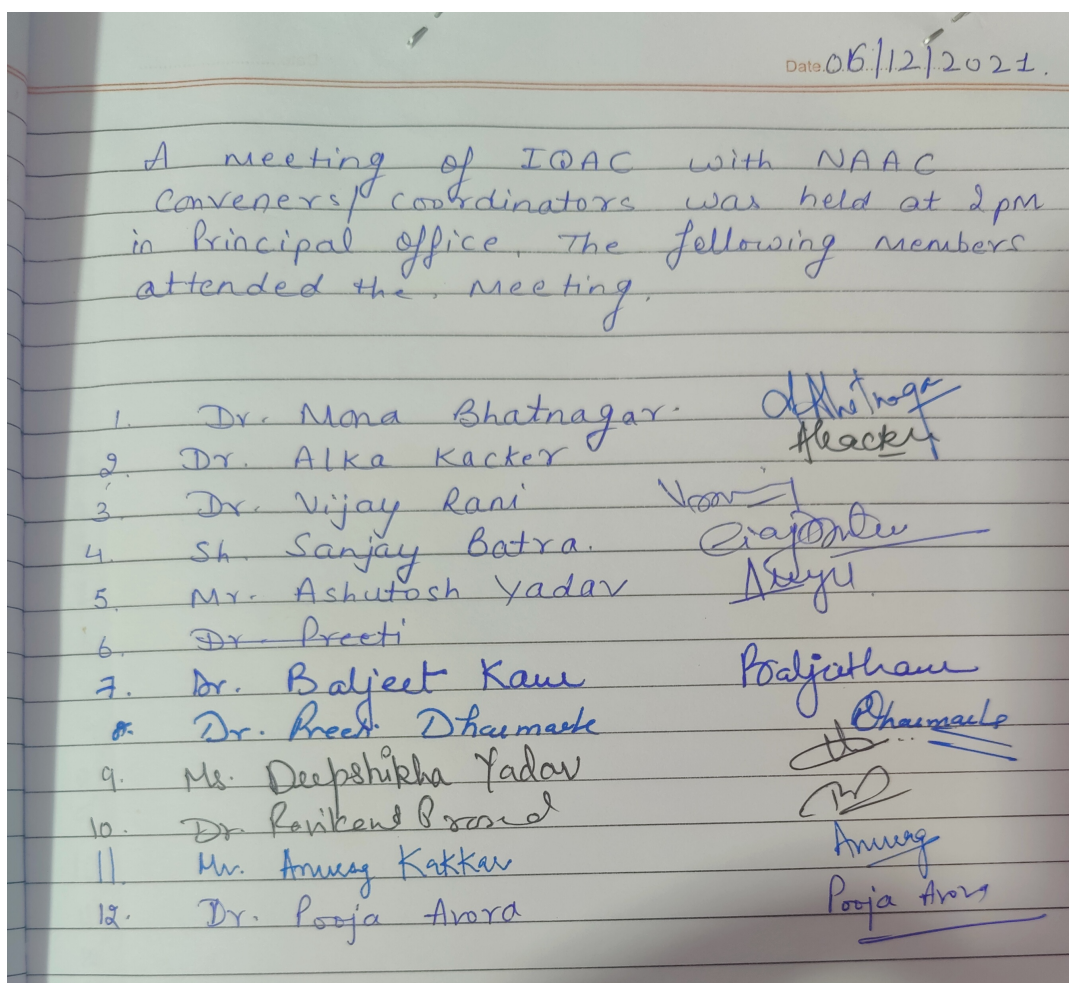 Date. 06/12/2021.
A meeting of IQAC with NAAC
Conveners/ coordinators was held at 2 pm
in Principal office. The following members
attended the meeting.
1. Dr. Mona Bhatnagar.
2. Dr. Alka Kacker Akacker
3. Dr. Vijay Rani
4. Sh. Sanjay Batra.
5. Mr. Ashutosh Yadav
6. Dr. Preeti
7. Dr. Baljeet Kaur
8. Dr. Preeti Dharmarha
9. Ms. Deepshikha Yadav
10. Dr. Ravikant Prasad
11. Mr. Anurag Kakkar Anurag
12. Dr. Pooja Arora Pooja Arora